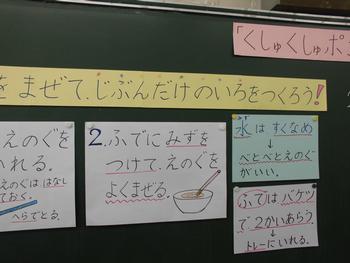 「くしゅくしゅポ
をまぜて、じぶんだけのいろをつくろう!
えのぐを
いれる。
えのぐは はなし
ておく。
へらでとる。
2.ふでにみずを
つけて、えのぐを
よくまぜる。
水はすくなめ
↓
べとべとえのぐ
がいい。
ふではバケツ
で2かいあらう。
↓
トレーにいれる。